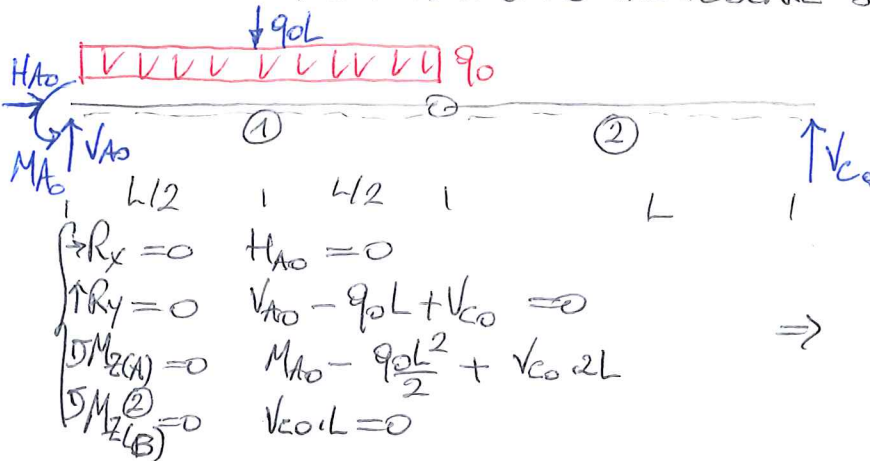 q₀L
H_A₀ q₀
① ②
M_A₀ V_A₀ V_C₀
L/2 L/2 L
→R_x = 0 H_A₀ = 0
↑R_y = 0 V_A₀ - q₀L + V_C₀ = 0
M_z(A) = 0 M_A₀ - q₀L²/2 + V_C₀.2L ⇒
M_z(B)② = 0 V_C₀.L = 0